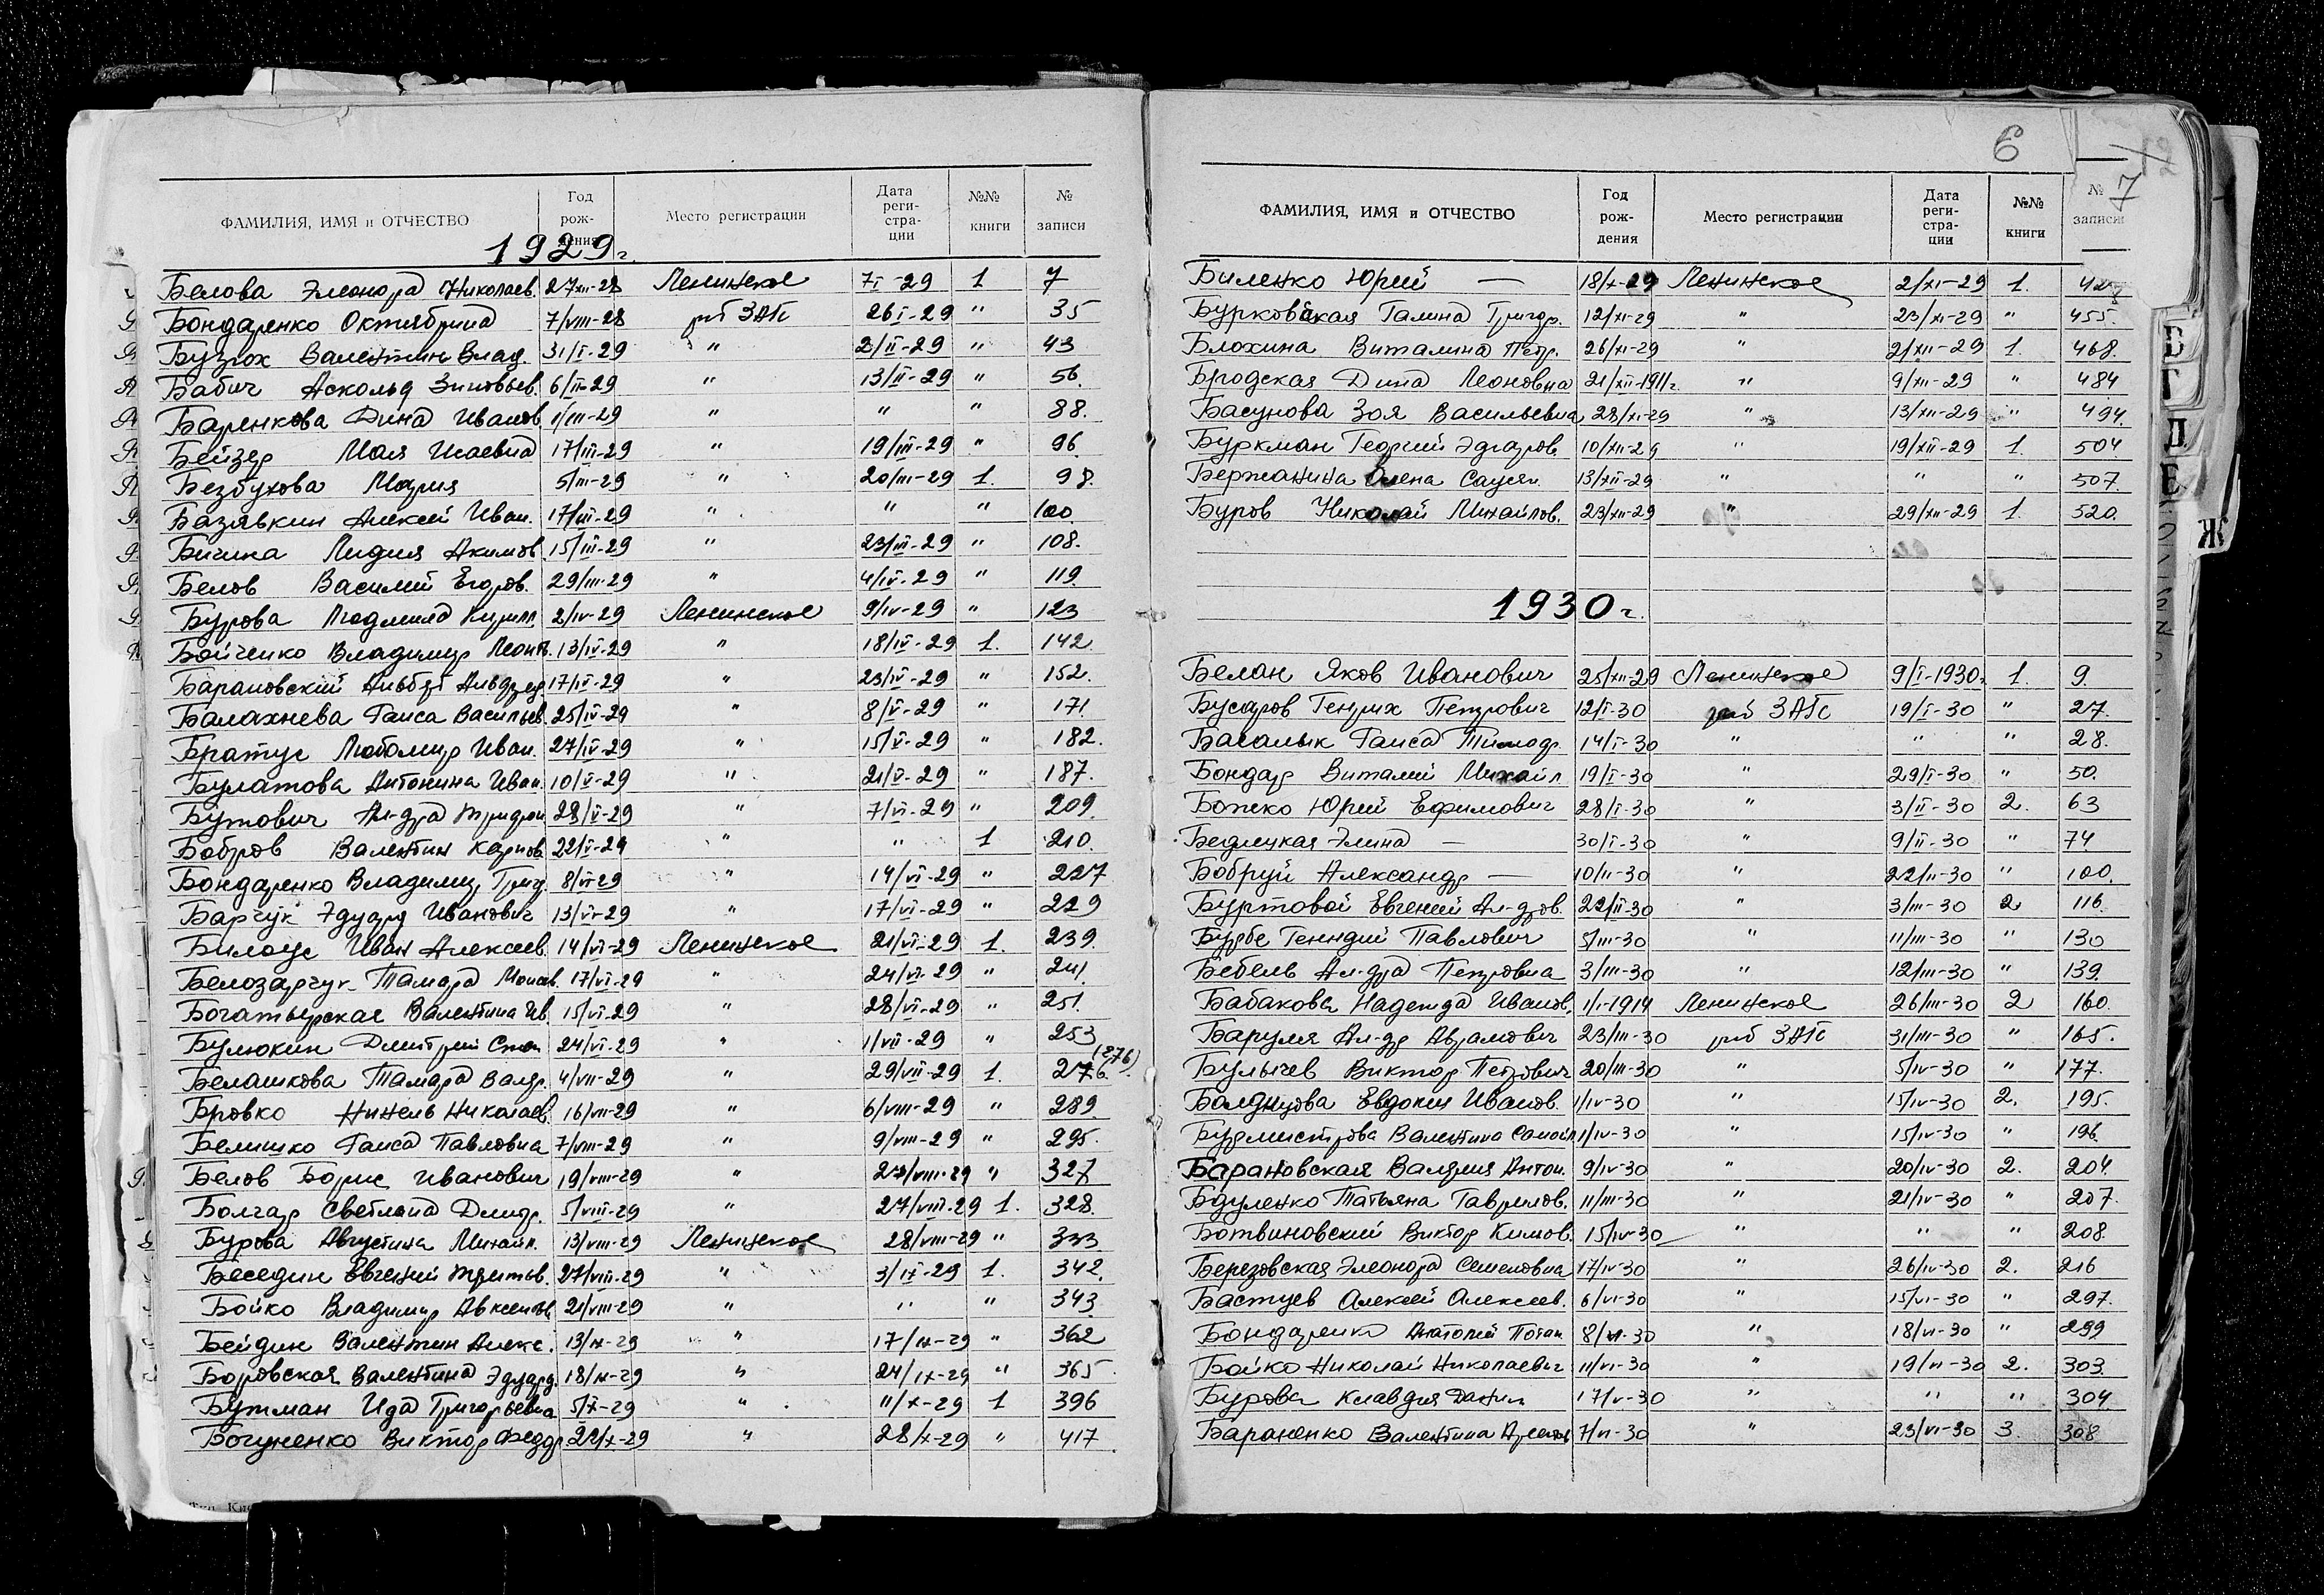 ФАМИЛИЯ, ИМЯ и ОТЧЕСТВО Год рож-дения Место регистрации Дата реги-стра-ции №№ книги № записи
1929 г.
Белова Элеонора Николаев. 27/XII-28 Ленинское 7/I-29 1 7
Бондаренко Октябрина 7/VIII-28 рай ЗАГС 26/I-29 " 35
Бузюх Валентин Влад. 31/I-29 " 2/II-29 " 43
Бабич Аскольд Зиновьев. 6/II-29 " 13/II-29 " 56
Баренкова Дина Иванов. 1/III-29 " " " 88.
Бейзер Мая Исаевна 17/III-29 " 19/III-29 " 96
Безбухова Мария 5/III-29 " 20/III-29 1. 98.
Базявкин Алексей Иван. 17/III-29 " " " 100
Бичина Лидия Акимов. 15/III-29 " 23/III-29 " 108.
Белов Василий Егоров. 29/III-29 " 4/IV-29 " 119.
Бурова Людмила Кирил. 2/IV-29 Ленинское 9/IV-29 " 123
Бойченко Владимир Леонт. 13/IV-29 " 18/IV-29 1. 142
Барановский Альберт 17/IV-29 " 23/IV-29 " 152.
Балахнева Раиса Васильев. 25/IV-29 " 8/V-29 " 171
Братус Любомир Иван. 27/IV-29 " 15/V-29 " 182.
Булатова Антонина Иван. 10/V-29 " 21/V-29 " 187.
Бутович Ал-дра Трифон 28/V-29 " 7/VI-29 " 209.
Бобров Валентин Карпов. 22/V-29 " " 1 210.
Бондаренко Владимир Григ. 8/VI-29 " 14/VI-29 " 227
Барчук Эдуард Иванович 13/VI-29 " 17/VI-29 " 229
Билоус Иван Алексеев. 14/VI-29 Ленинское 21/VI-29 1. 239.
Белозарчук Тамара Моисев. 17/VI-29 " 24/VI-29 " 241.
Богатырская Валентина Ив. 15/VI-29 " 28/VI-29 " 251.
Булюкин Дмитрий Степ. 24/VI-29 " 1/VII-29 " 253
Белашкова Тамара Валер. 4/VII-29 " 29/VII-29 1. 276. (276)
Бровко Нинель Николаев. 16/VII-29 " 6/VIII-29 " 289.
Белишко Раиса Павловна 7/VIII-29 " 9/VIII-29 " 295.
Белов Борис Иванович 19/VIII-29 " 27/VIII-29 " 327
Болгар Светлана Дмитр. 5/VIII-29 " 27/VIII-29 1. 328.
Бурова Августина Михайл. 13/VIII-29 Ленинское 28/VIII-29 " 333
Беседин Евгений 27/VIII-29 " 3/IX-29 1. 342.
Бойко Владимир Авксентьев. 21/VIII-29 " " " 343
Бейдин Валентин Алекс. 13/IX-29 " 17/IX-29 " 362
Боровская Валентина Эдуард. 18/IX-29 " 24/IX-29 " 365
Бутман Ида Григорьевна 5/X-29 " 11/X-29 1 396
Богуненко Виктор Федор. 22/X-29 " 28/X-29 " 417
6
7
12
ФАМИЛИЯ, ИМЯ и ОТЧЕСТВО Год рож-дения Место регистрации Дата реги-стра-ции №№ книги № записи
Биленко Юрий — 18/X-29 Ленинское 2/XI-29 1.
Бурковская Галина Григор. 12/XI-29 " 23/XI-29 " 455.
Блохина Виталина Петр. 26/XI-29 " 2/XII-29 1. 468.
Бродская Дина Леоновна 21/XII-1911г. " 9/XII-29 " 484
Басунова Зоя Васильевна 28/XI-29 " 13/XII-29 " 494.
Буркман Георгий Эдгаров. 10/XII-29 " 19/XII-29 1. 504
Бержанина Елена 13/XII-29 " " " 507.
Буров Николай Михайлов. 23/XII-29 " 29/XII-29 1. 520.
1930 г.
Белан Яков Иванович 25/XII-29 Ленинское 9/I-1930г. 1. 9.
Бусаров Генрих Петрович 12/I-30 рай ЗАГС 19/I-30 " 27.
Басалык Раиса Тимоф. 14/I-30 " " " 28.
Бондар Виталий Михайл. 19/I-30 " 29/I-30 " 50.
Божко Юрий Ефимович 28/I-30 " 3/II-30 2. 63
Бедлецкая Элина — 30/I-30 " 9/II-30 " 74
Бобруй Александр — 10/II-30 " 22/II-30 " 100.
Буртовой Евгений Ал-дров. 22/II-30 " 3/III-30 2 116.
Бурбе Геннадий Павлович 5/III-30 " 11/III-30 " 130
Бебель Ал-дра Петровна 3/III-30 " 12/III-30 " 139.
Бабакова Надежда Иванов. 1/I-1914 Ленинское 26/III-30 2 160.
Баруля Ал-др Абрамович 23/III-30 рай ЗАГС 31/III-30 " 165.
Булычев Виктор Петрович 20/III-30 " 5/IV-30 " 177.
Болдырова Евдокия Иванов. 1/IV-30 " 15/IV-30 2. 195.
Бурмистрова Валентина Самойл 1/IV-30 " 15/IV-30 " 196
Барановская Валерия Антон. 9/IV-30 " 20/IV-30 2. 204.
Бдуленко Татьяна Гаврилов. 11/III-30 " 21/IV-30 " 207.
Ботвиновский Виктор Климов. 15/IV-30 " " " 208.
Березовская Элеонора Семеновна 17/IV-30 " 26/IV-30 2. 216
Бастуев Алексей Алексеев. 6/VI-30 " 15/VI-30 " 297.
Бондаренко Анатолий Потап. 8/VI-30 " 18/VI-30 " 299
Бойко Николай Николаевич 11/VI-30 " 19/VI-30 2. 303.
Бурова Клавдия Данил. 17/V-30 " " " 304
Бараненко Валентина 7/VI-30 " 23/VI-30 3. 308
В
Г
Д
Е
Ж